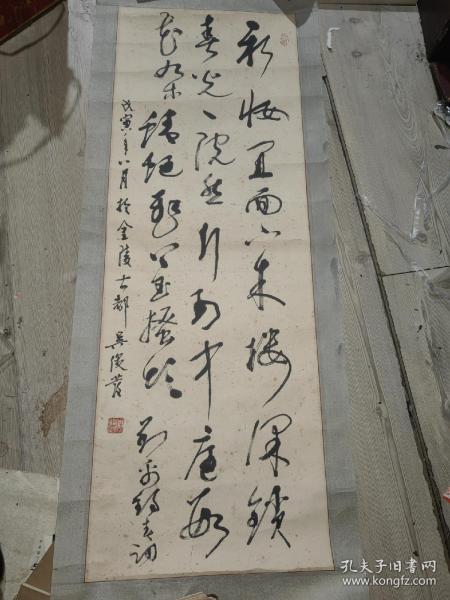 新妆宜面下朱楼深锁
春光一院愁行到中庭数
花朵蜻蜓飞上玉搔头
刘禹锡春词
戊寅年八月于金陵古都 吴俊发
孔夫子旧书网
www.kongfz.com